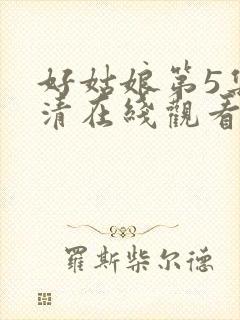 好姑娘第5集
清在綫觀看
羅斯柴尔德